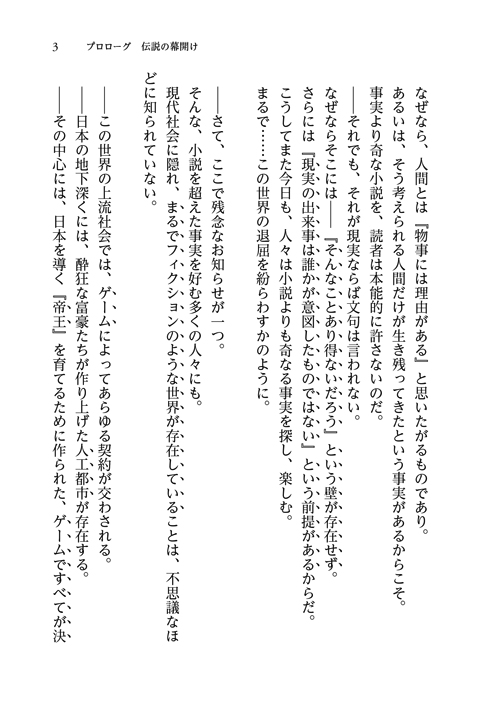 3　プロローグ　伝説の幕開け
なぜなら、人間とは『物事には理由がある』と思いたがるものであり。
あるいは、そう考えられる人間だけが生き残ってきたという事実があるからこそ。
事実より奇な小説を、読者は本能的に許さないのだ。
――それでも、それが現実ならば文句は言われない。
なぜならそこには――『そんなことあり得ないだろう』という壁が存在せず。
さらには『現実の出来事は誰かが意図したものではない』という前提があるからだ。
こうしてまた今日も、人々は小説よりも奇なる事実を探し、楽しむ。
まるで……この世界の退屈を紛らわすかのように。
――さて、ここで残念なお知らせが一つ。
そんな、小説を超えた事実を好む多くの人々にも。
現代社会に隠れ、まるでフィクションのような世界が存在していることは、不思議なほ
どに知られていない。
――この世界の上流社会では、ゲームによってあらゆる契約が交わされる。
――日本の地下深くには、酔狂な富豪たちが作り上げた人工都市が存在する。
――その中心には、日本を導く『帝王』を育てるために作られた、ゲームですべてが決